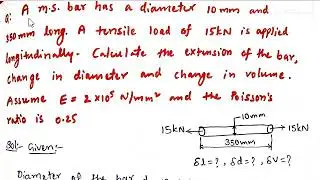 Q: A m.s. bar has a diameter 10mm and
350mm long. A tensile load of 15kN is applied
longitudinally. Calculate the extension of the bar,
change in diameter and change in volume.
Assume E = 2×10⁵ N/mm² and the Poisson's
ratio is 0.25
10mm
15kN
15kN
350mm
Sol:- Given:-
δl=? , δd=? , δv=?
Diameter of the bar d